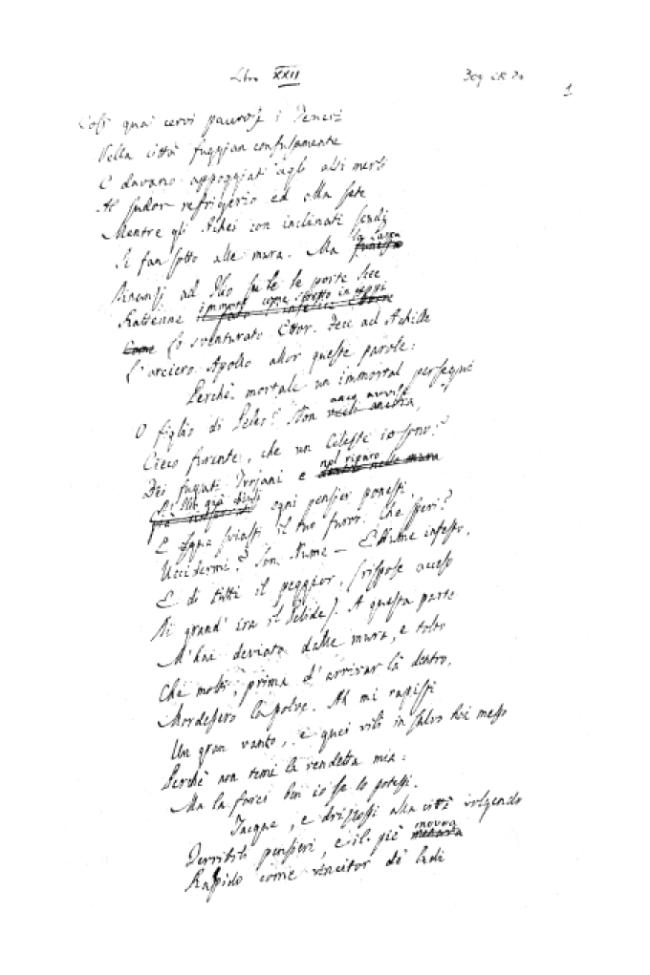 Libro XXII
1
Così quai cervi paurosi i Teucri
Nella città fuggian confusamente
E davano appoggiati agli alti merli
Al sudor refrigerio ed alla sete
Mentre gli Achei con inclinati scudi
Si fan sotto alle mura. Ma la Parca
funesta
Dinanzi ad Ilio su le porte Scee
Rattenne immoto come stretto in ceppi
Come Lo sventurato Ettor. Fece ad Achille
L'arciero Apollo allor queste parole:
Perchè, mortale un immortal persegui
O figlio di Peleo? Non anco avvisi
vedi ancora,
Cieco furente, che un Celeste io sono?
Dei fugati Trojani e nel riparo
nelle mura
ogni pensier ponesti
E quà sviasti il tuo furor. Che speri?
Uccidermi? Son Nume — E Nume infesto,
E di tutti il peggior, (rispose acceso
Di grand' ira il Pelide). A questa parte
M'hai deviato dalle mura, e tolto
Che molti, prima d'arrivar là dentro,
Mordessero la polve. Ah mi rapisti
Un gran vanto, e quei vili in salvo hai messo
Perchè non temi la vendetta mia:
Ma la farei ben io se lo potessi.
Tacque, e drizzossi alla città volgendo
Terribili pensieri, e il piè movea
Rapido come vincitor de' ludi